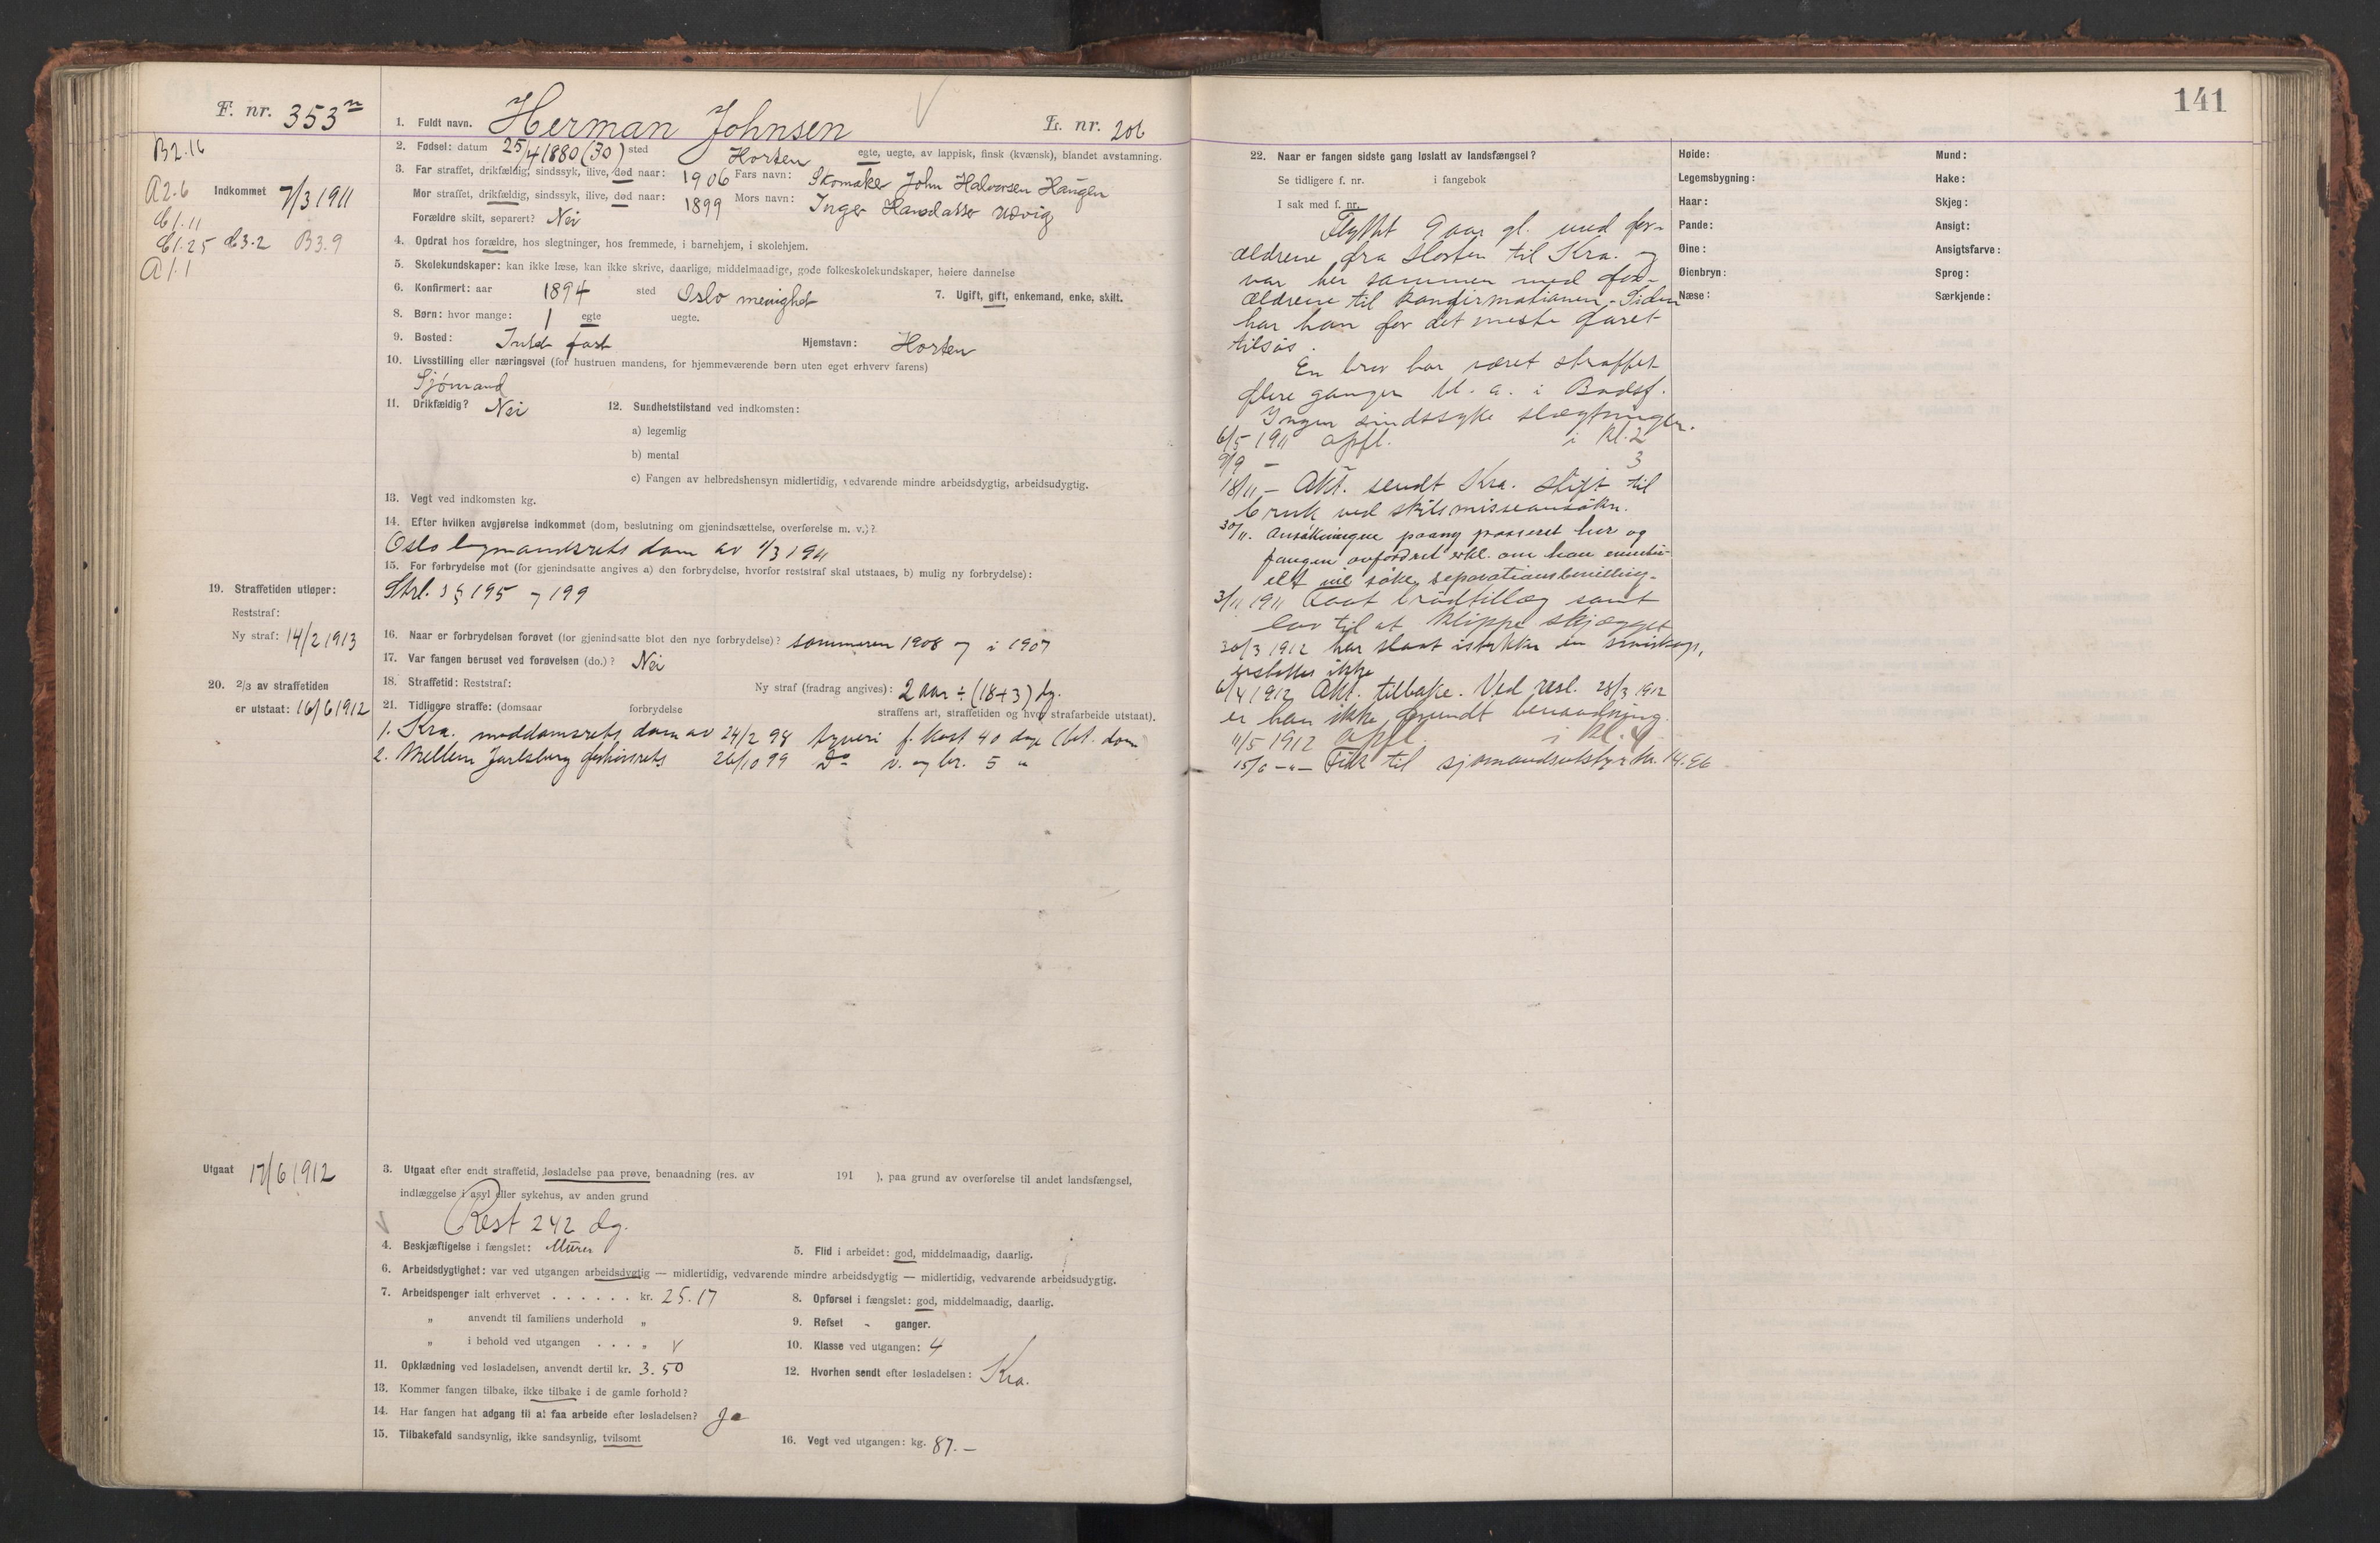 F. nr. 353
B2.16
A2.6
Indkommet 7/3 1911
C1.11
C1.25 C3.2 B3.9
A1.1
1. Fuldt navn. Herman Johnsen L. nr. 206
2. Fødsel: datum 25/4 1880 (30) sted Horten egte, uegte, av lappisk, finsk (kvænsk), blandet avstamning.
3. Far straffet, drikfældig, sindssyk, ilive, død naar: 1906 Fars navn: Skomaker John Halvorsen Haugen
Mor straffet, drikfældig, sindssyk, ilive, død naar: 1899 Mors navn: Inger Hansdatter
Forældre skilt, separert? Nei
4. Opdrat hos forældre, hos slegtninger, hos fremmede, i barnehjem, i skolehjem.
5. Skolekundskaper: kan ikke læse, kan ikke skrive, daarlige, middelmaadige, gode folkeskolekundskaper, høiere dannelse
6. Konfirmert: aar 1894 sted Oslo menighet 7. Ugift, gift, enkemand, enke, skilt.
8. Børn: hvor mange: 1 egte uegte.
9. Bosted: Intet fast Hjemstavn: Horten
10. Livsstilling eller næringsvei (for hustruen mandens, for hjemmeværende børn uten eget erhverv farens)
Sjømand
11. Drikfældig? Nei 12. Sundhetstilstand ved indkomsten:
a) legemlig
b) mental
c) Fangen av helbredshensyn midlertidig, vedvarende mindre arbeidsdygtig, arbeidsudygtig.
13. Vegt ved indkomsten kg.
14. Efter hvilken avgjørelse indkommet (dom, beslutning om gjenindsættelse, overførelse m. v.)?
Oslo lagmandsrets dom av 1/3 1911
15. For forbrydelse mot (for gjenindsatte angives a) den forbrydelse, hvorfor reststraf skal utstaaes, b) mulig ny forbrydelse):
Strl. §§ 195 og 199
19. Straffetiden utløper:
Reststraf:
Ny straf: 14/2 1913
16. Naar er forbrydelsen forøvet (for gjenindsatte blot den nye forbrydelse)? sommeren 1908 og i 1907
17. Var fangen beruset ved forøvelsen (do.)? Nei
18. Straffetid: Reststraf: Ny straf (fradrag angives): 2 aar ÷ (18+3) dg.
20. 2/3 av straffetiden
er utstaat: 16/6 1912
21. Tidligere straffe: (domsaar forbrydelse straffens art, straffetiden og hvor strafarbeide utstaat).
1. Kra. meddomsrets dom av 24/2 98 tyveri f. kost 40 dage (bet. dom
2. Mellem Jarlsberg forhørsrets 26/10 99 Do v. og br. 5 "
Utgaat 17/6 1912
3. Utgaat efter endt straffetid, løsladelse paa prøve, benaadning (res. av 191 ), paa grund av overførelse til andet landsfængsel,
indlæggelse i asyl eller sykehus, av anden grund
Rest 242 dg.
4. Beskjæftigelse i fængslet: Murer 5. Flid i arbeidet: god, middelmaadig, daarlig.
6. Arbeidsdygtighet: var ved utgangen arbeidsdygtig — midlertidig, vedvarende mindre arbeidsdygtig — midlertidig, vedvarende arbeidsudygtig.
7. Arbeidspenger ialt erhvervet . . . . . . kr. 25.17 8. Opførsel i fængslet: god, middelmaadig, daarlig.
" anvendt til familiens underhold " 9. Refset - ganger.
" i behold ved utgangen . . . . " 10. Klasse ved utgangen: 4
11. Opklædning ved løsladelsen, anvendt dertil kr. 3.50 12. Hvorhen sendt efter løsladelsen: Kra.
13. Kommer fangen tilbake, ikke tilbake i de gamle forhold?
14. Har fangen hat adgang til at faa arbeide efter løsladelsen? Ja
15. Tilbakefald sandsynlig, ikke sandsynlig, tvilsomt 16. Vegt ved utgangen: kg. 87.—
141
22. Naar er fangen sidste gang løslatt av landsfængsel?
Se tidligere f. nr. i fangebok
I sak med f. nr.
Flyttet 9 aar gl. med for-
ældrene fra Horten til Kra. og
var her sammen med for-
ældrene til konfirmationen. Siden
har han for det meste faret
tilsjøs.
En bror har været straffet
flere ganger bl. a. i Bodsf.
Ingen sindssyke slægtninger.
6/5 1911 opfl. i kl. 2
9/9 - 3
18/11 - Akt. sendt Kra. stift til
bruk ved skilsmisseansøkn.
30/11. Ansøkningen paany passeret her og
fangen avfordret erkl. om han eventu-
elt vil søke separationsbevilling.
3/11 1911 Faat brødtillæg samt
lov til at klippe skjægget
20/3 1912 har slaat istykker en
erstattes ikke
6/4 1912 Akt. tilbake. Ved resl. 28/3 1912
er han ikke forundt benaadning.
11/5 1912 opfl. i kl. 4
15/6 -"- Fik til sjømandsutstyr kr. 14.26
Høide:
Legemsbygning:
Haar:
Pande:
Øine:
Øienbryn:
Næse:
Mund:
Hake:
Skjeg:
Ansigt:
Ansigtsfarve:
Sprog:
Særkjende: